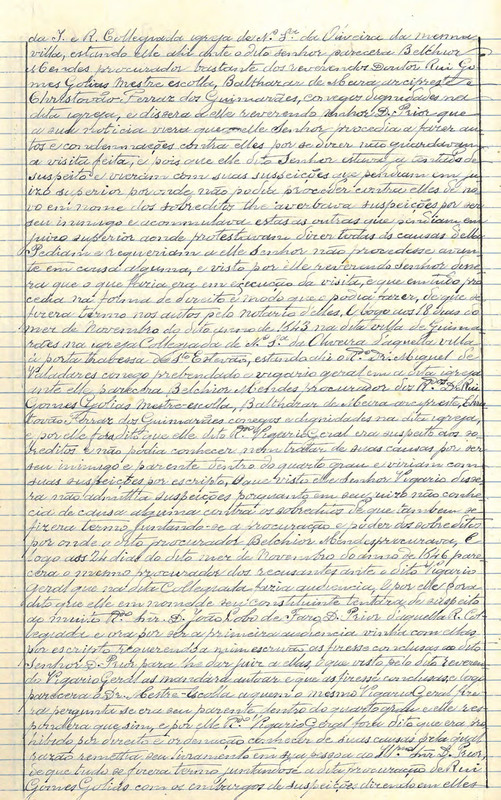 da I. e R. Collegiada igreja de N.ª Sr.ª da Oliveira da mesma
villa, estando elle ahi ante o dito senhor parecera Belchior
Mendes procurador bastante dos reverendos Doutor Rui Go
mes Golias Mestre escolla, Balthazar de Meira arcipreste e
Christovão Ferraz dos Guimarães, conegos dignidades na
dita igreja, e dissera a elle reverendo senhor D. Prior que
a sua noticia viera que elle Senhor procedia a fazer au
tos e condemnações contra elles por se dizer não guardavam
a visita feita, e pois que elle dito Senhor estava
suspeito e vieram com suas suspeições que pendiam em ju
izo superior por onde não podia proceder contra elles de no
vo em nome dos sobreditos lhe averbava suspeições por ser
seu inimigo e accumulava estas ás outras que pendiam em
juizo superior aonde protestavam dizer todas as causas dellas
Pediam e requeriam a elle Senhor não procedesse avan
te em causa alguma, e visto por elle reverendo senhor disse
ra que o que fazia era em execução da visita, e que em tudo pro
cedia na forma de direito e modo que podia fazer, de que se
fizera termo nos autos pelo notario delles. E logo aos 18 dias do
mez de Novembro do dito anno de 1643 na dita villa de Guima
rães na igreja Collegiada de N.ª Sr.ª da Oliveira daquella villa
á porta travessa de S.to Estevão, estando ahi o R.do Dr. Miguel de
Valadares conego prebendado e vigario geral em a dita igreja
ante elle parecera Belchior Mendes procurador dos R.dos D. Rui
Gomes Golias Mestre escolla, Balthazar de Meira arcipreste, Chris
tovão Ferraz dos Guimarães conegos e dignidades na dita igreja,
e por elle fôra dito que elle dito R.do Vigario Geral era suspeito aos so
breditos e não podia conhecer, nem tratar de suas causas por ser
seu inimigo e parente dentro do quarto grau e viriam com
suas suspeições por escripto, o que visto elle Senhor Vigario disse
ra não admittia suspeições porquanto em seu juizo não conhe
cia de causa alguma contra os sobreditos de que tambem se
fizera termo, juntando-se a procuração e poder dos sobreditos
por onde o dito procurador Belchior Mendes procurava. E
logo aos 24 dias do dito mez de Novembro do anno de 1646 pare
cera o mesmo procurador dos recusantes ante o dito Vigario
Geral que na dita Collegiada fazia audiencia, e por elle fôra
dito que elle em nome de seus constituintes tentára de suspeito
ao muito R.do Snr. D. João Lobo de Faro D. Prior daquella R. Col
legiada e ora por ser a primeira audiencia vinha com ellas
por escripto requerendo a mim escrivão as fizesse conclusas ao dito
Senhor D. Prior para lhe dar juiz a ellas, o que visto pelo dito Reveren
do Vigario Geral as mandára autuar e que as fizesse conclusas, e logo
parecera o Dr. Mestre-escolla a quem o mesmo Vigario Geral fize
ra pergunta se era seu parente dentro do quarto grau e elle res
pondera que sim, e por elle R.do Vigario Geral fôra dito que era in
hibido por direito e ordenação conhecer de suas causas pela qual
razão remettia seu juramento em sua pessoa ao Ill.mo Snr. D. Prior,
de que tudo se fizera termo juntando-se a dita procuração de Rui
Gomes Golias com os embargos de suspeições dizendo em elles